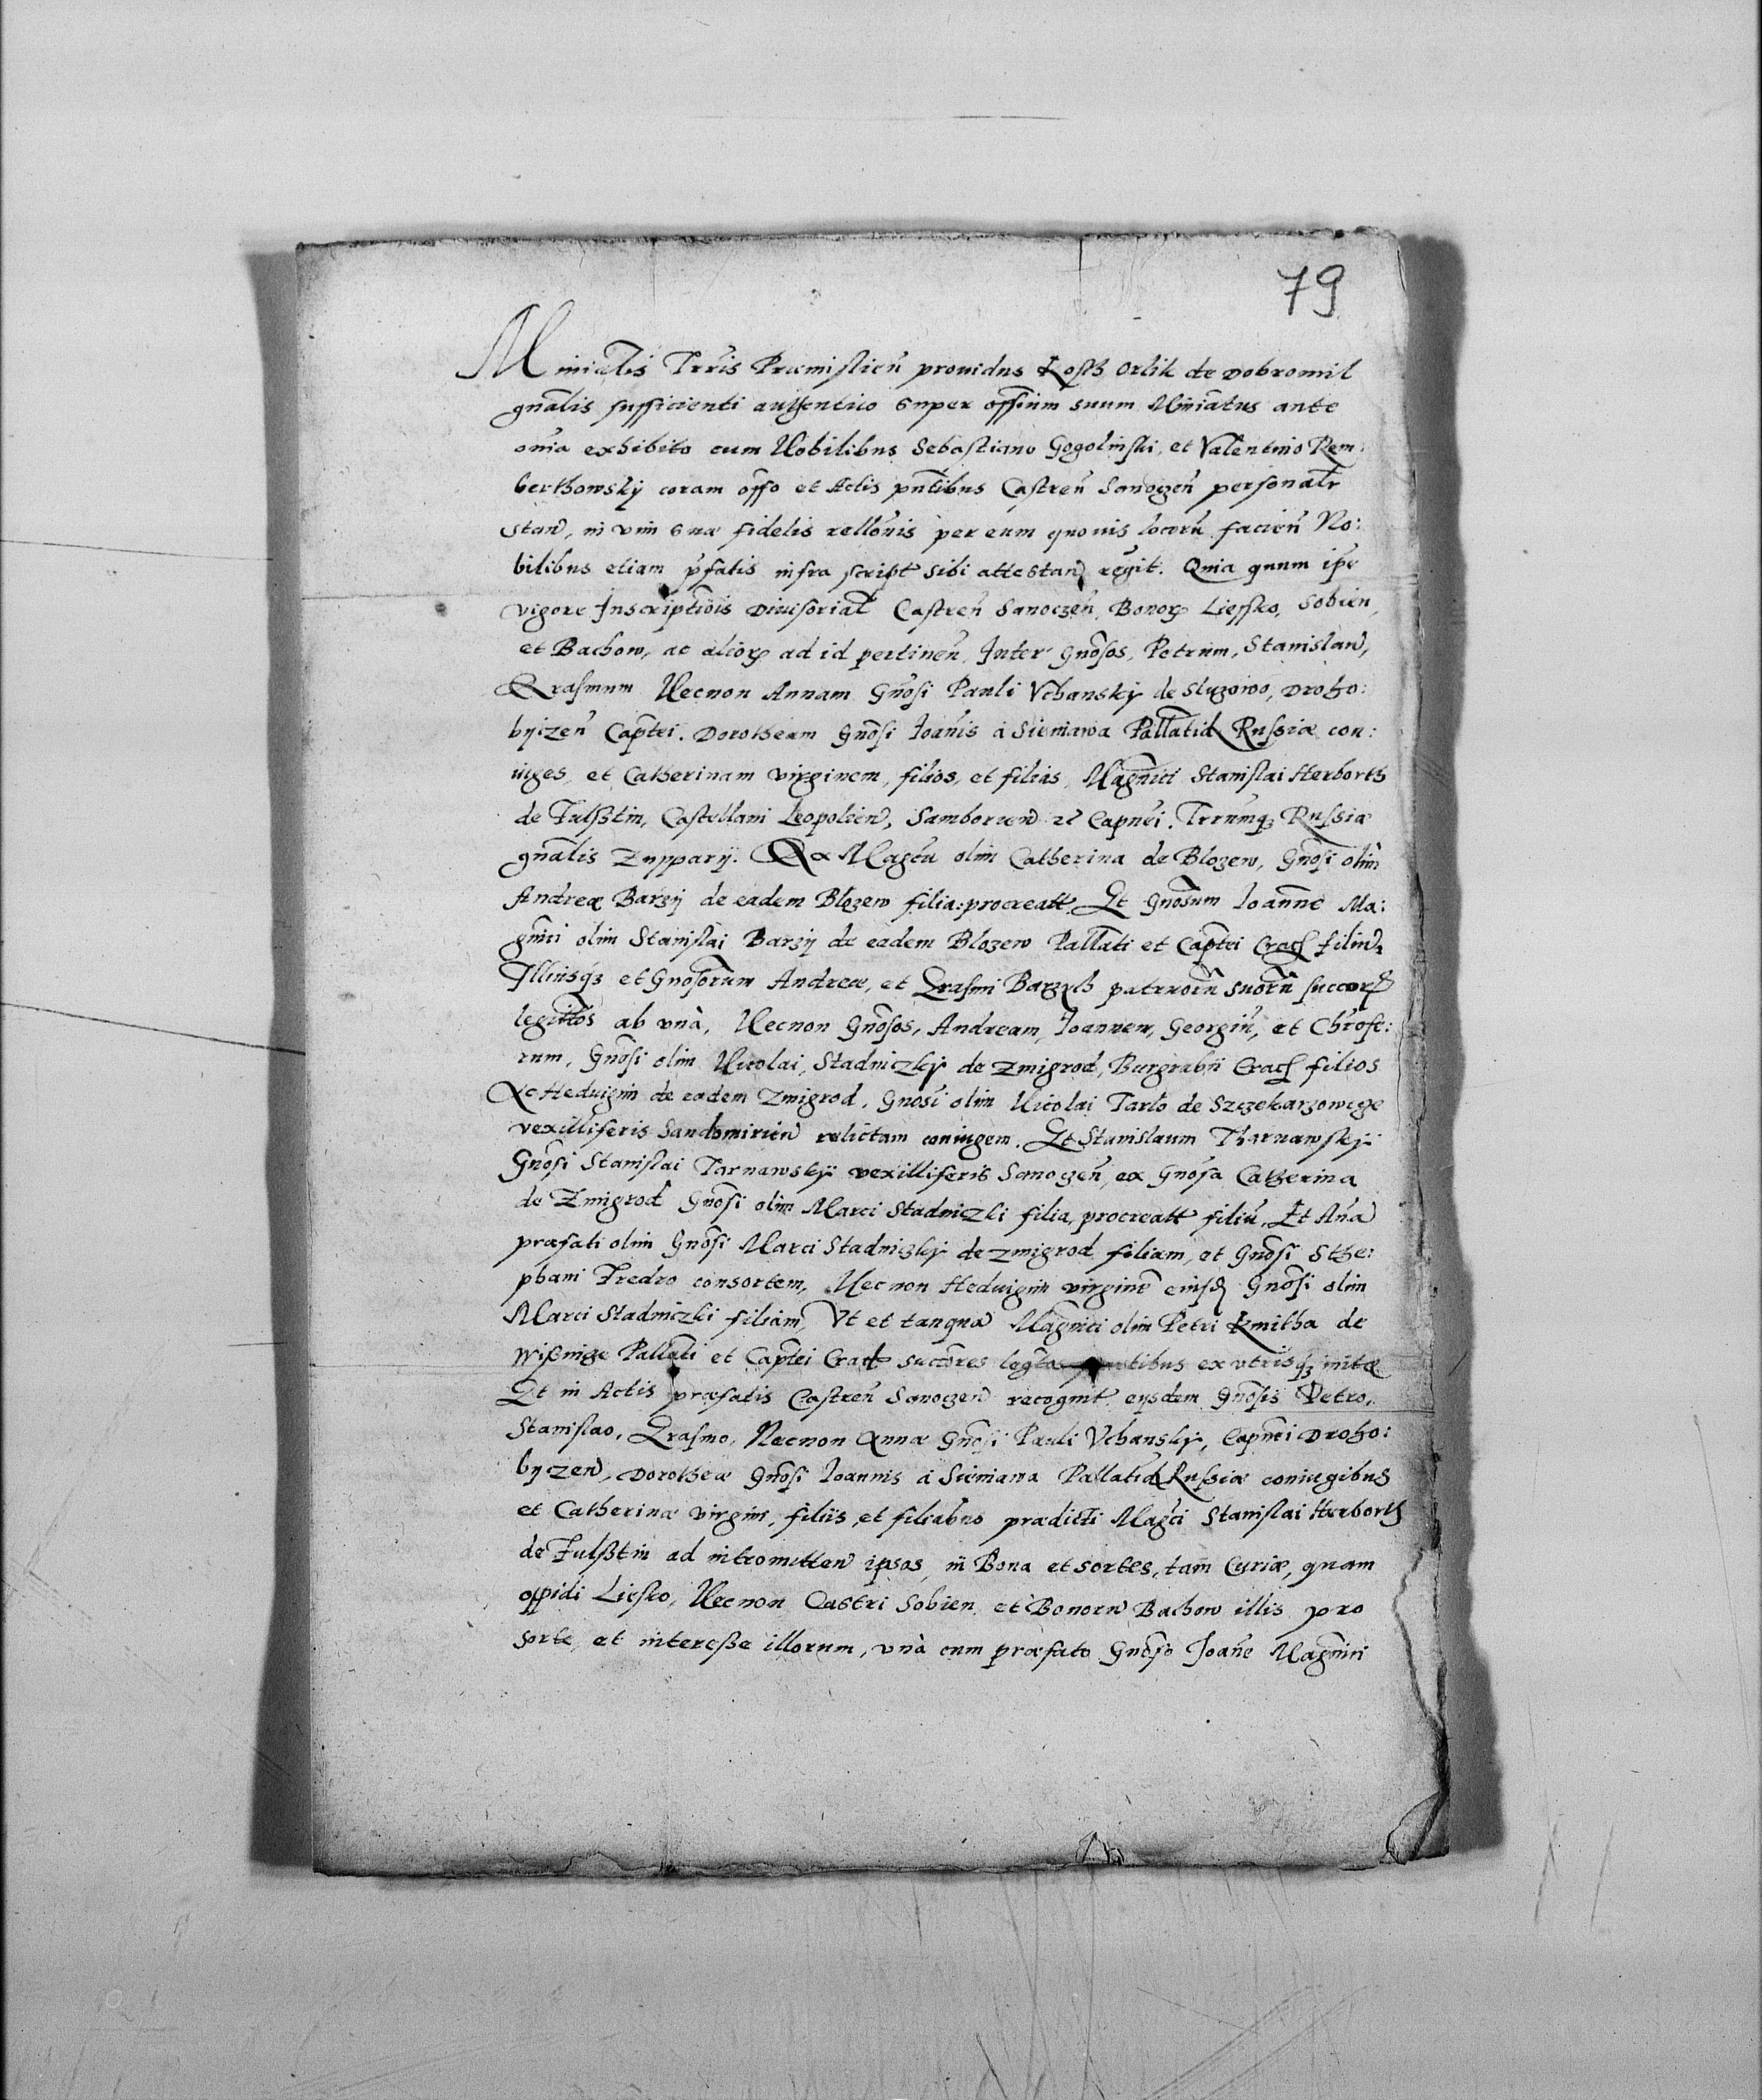 79
Minialis Trris Præmislien̄ prouidus Kosth Orlik de Dobromil
gnālis sufficienti authentico super offium suum Minīatus ante
om̄ia exhibito cum Nobilibus Sebastiano Gogolinski, et Valentino Rem:
berthowskӱ coram off̄o et Actis pn̄tibus Castren̄ Sanoczen̄ personalr̄
stan̄, in vim suæ fidelis rellōnis per eum quouis locorū facien̄ No:
bilibus etiam p̄fatis infra script sibi attestan̄ regit. Quia quum ipse
vigore Inscriptiōis Diuisorial Castren̄ Sanoczen̄, Bonor Liessko, Sobien,
et Bachow, ac alior ad id pertinen̄, Inter Gnōsos, Petrum, Stanislau̅,
Erasmum Necnon Annam Gnōsi Pauli Vchanskӱ de Sluzowo, Droho:
byczen̄ Captei. Dorotheam Gnōsi Ioānis à Sieniawa Pallatid Russiæ con:
iuges, et Catherinam virginem, filios, et filias, Magnīci Stanislai Herborth
de Fulßtin, Castellani Leopolien̄, Samborien̄ et Capnēi. Trrumq Russiæ
gnālis Zupparij. Ex Magcā olim Catherina de Blozew, Gnōsi olim
Andreæ Barzij de eadem Blozew filia: procreatt. Et Gnōsum Ioannē Ma:
gnīci olim Stanislai Barzij de eadem Blozew Pallāti et Captēi Crac filiu̅,
Illiusq et Gnosorum Andreæ, et Erasmi Barzych patruorū suorū succors
legittōs ab vnà, Necnon Gnōsos, Andream, Ioannem, Georgiū, et Chrofe:
rum, Gnōsi olim Nicolai, Stadniczkӱ de Zmigrod, Burgrabij Crac filios
Ac Heduigim de eadem Zmigrod, Gnōsi olim Nicolai Tarlo de Szczekarzowicze
vexilliferis Sandomirien̄ relictam coniugem. Et Stanislaum Tharnawskӱ
Gnōsi Stanislai Tarnawskӱ vexilliferis Sanoczen̄, ex Gnōsa Catherina
de Zmigrod Gnōsi olim Marci Stadniczki filia, procreatt filiū, Et Anā
præfati olim Gnōsi Marci Stadniczkӱ de Zmigrod filiam, et Gnōsi Sthe:
phani Fredro consortem, Necnon Heduigim virginē eiusd Gnōsi olim
Marci Stadniczki filiam, Vt et tanqua̅ Magnīci olim Petri Kmitha de
Wißnicze Pallāti et Captēi Crac succōres legtōs ex vtrisq initæ
Et in Actis præfatis Castren̄ Sanoczen̄ recognit. eijsdem Gnōsis Petro,
Stanislao, Erasmo, Necnon Annæ Gnōsi Pauli Vchanskӱ, Capnēi Droho:
byczen̄, Dorotheæ Gnōsi Ioannis à Sieniawa Pallatid Russiæ coniugibus
et Catherinæ virgini, filiis, et filiabus prædicti Magci Stanislai Herborth
de Fulßtin ad intromitten̄ ipsos, in Bona et sortes, tam Curiæ, quam
oppidi Liesko, Necnon Castri Sobien, et Bonoru̅ Bachow illis pro
sorte, et interesse illorum, vnà cum præfato Gnōso Ioān̄e Magnīci